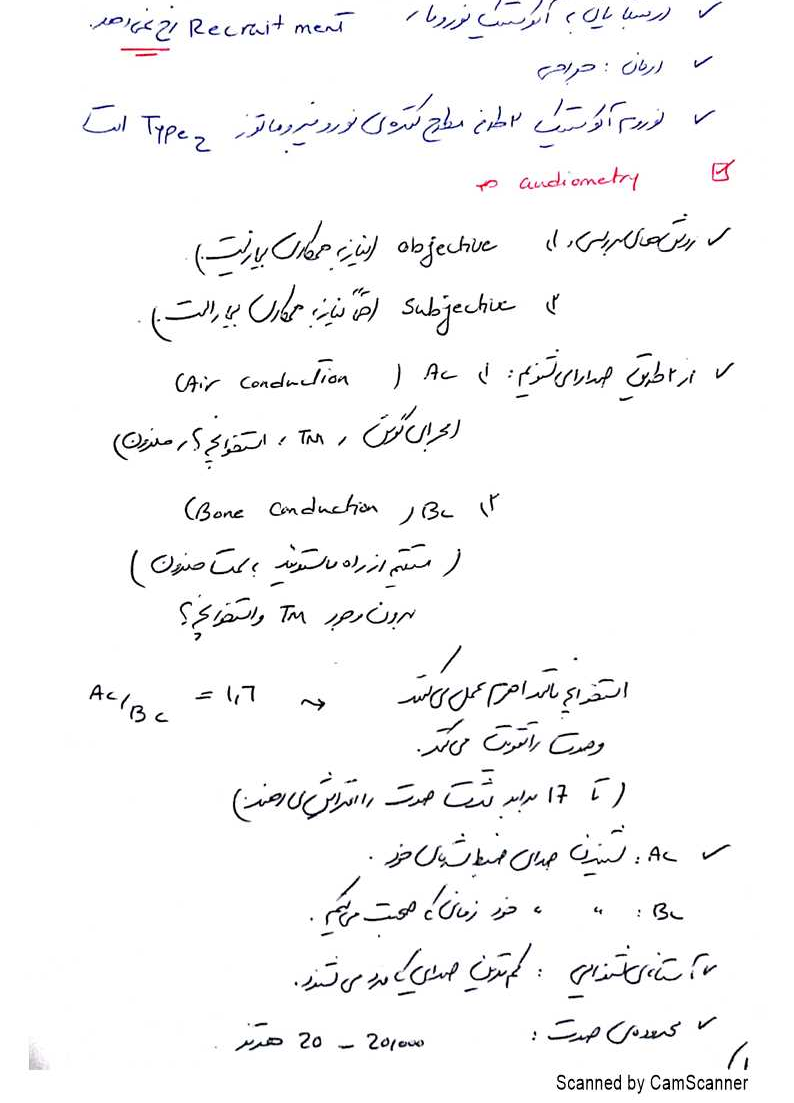 ✓ در مبتلایان به آکوستیک نوروما، Recruitment رخ نمی‌دهد.
✓ درمان: جراحی
✓ نوروم آکوستیک ۲ طرفه مطرح کننده‌ی نوروفیبروماتوز Type 2 است
☑ audiometry
✓ روش‌های بررسی: ۱) objective (نیاز به همکاری بیمار نیست.)
۲) Subjective (حتماً نیاز به همکاری بیمار است).
✓ از ۲ طریق صدا را می‌شنویم: ۱) AC (Air conduction)
(مجرای گوش، TM، استخوانچه، حلزون)
۲) BC (Bone conduction)
(مستقیم از راه ماستوئید به سمت حلزون)
بدون وجود TM و استخوانچه
AC/BC = 1,7 استخوانچه مانند اهرم عمل می‌کنند
و صوت را تقویت می‌کند.
(تا 17 برابر شدت صوت را افزایش می‌دهند)
✓ AC: شنیدن صدای ضبط شده‌ی خود.
BC: " " خود زمانی که صحبت می‌کنیم.
✓ آستانه‌ی شنوایی: کم‌ترین صدایی که فرد می‌شنود.
✓ محدوده‌ی صوت: 20 - 20,000 هرتز.
1
Scanned by CamScanner